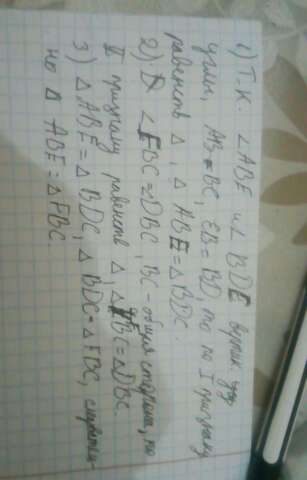 1) Т.К. ∠ABE и ∠ BDE вертик.
углы, AB = BC, EB = BD, то по I признаку
равенств Δ, Δ ABE = Δ BDC.
2) ∠FBC = DBC, BC - общая сторона, по
II признаку равенств Δ, Δ FBC = ΔDBC.
3) Δ ABE = Δ BDC, Δ BDC = Δ FBC, следователь-
но Δ ABE = Δ FBC